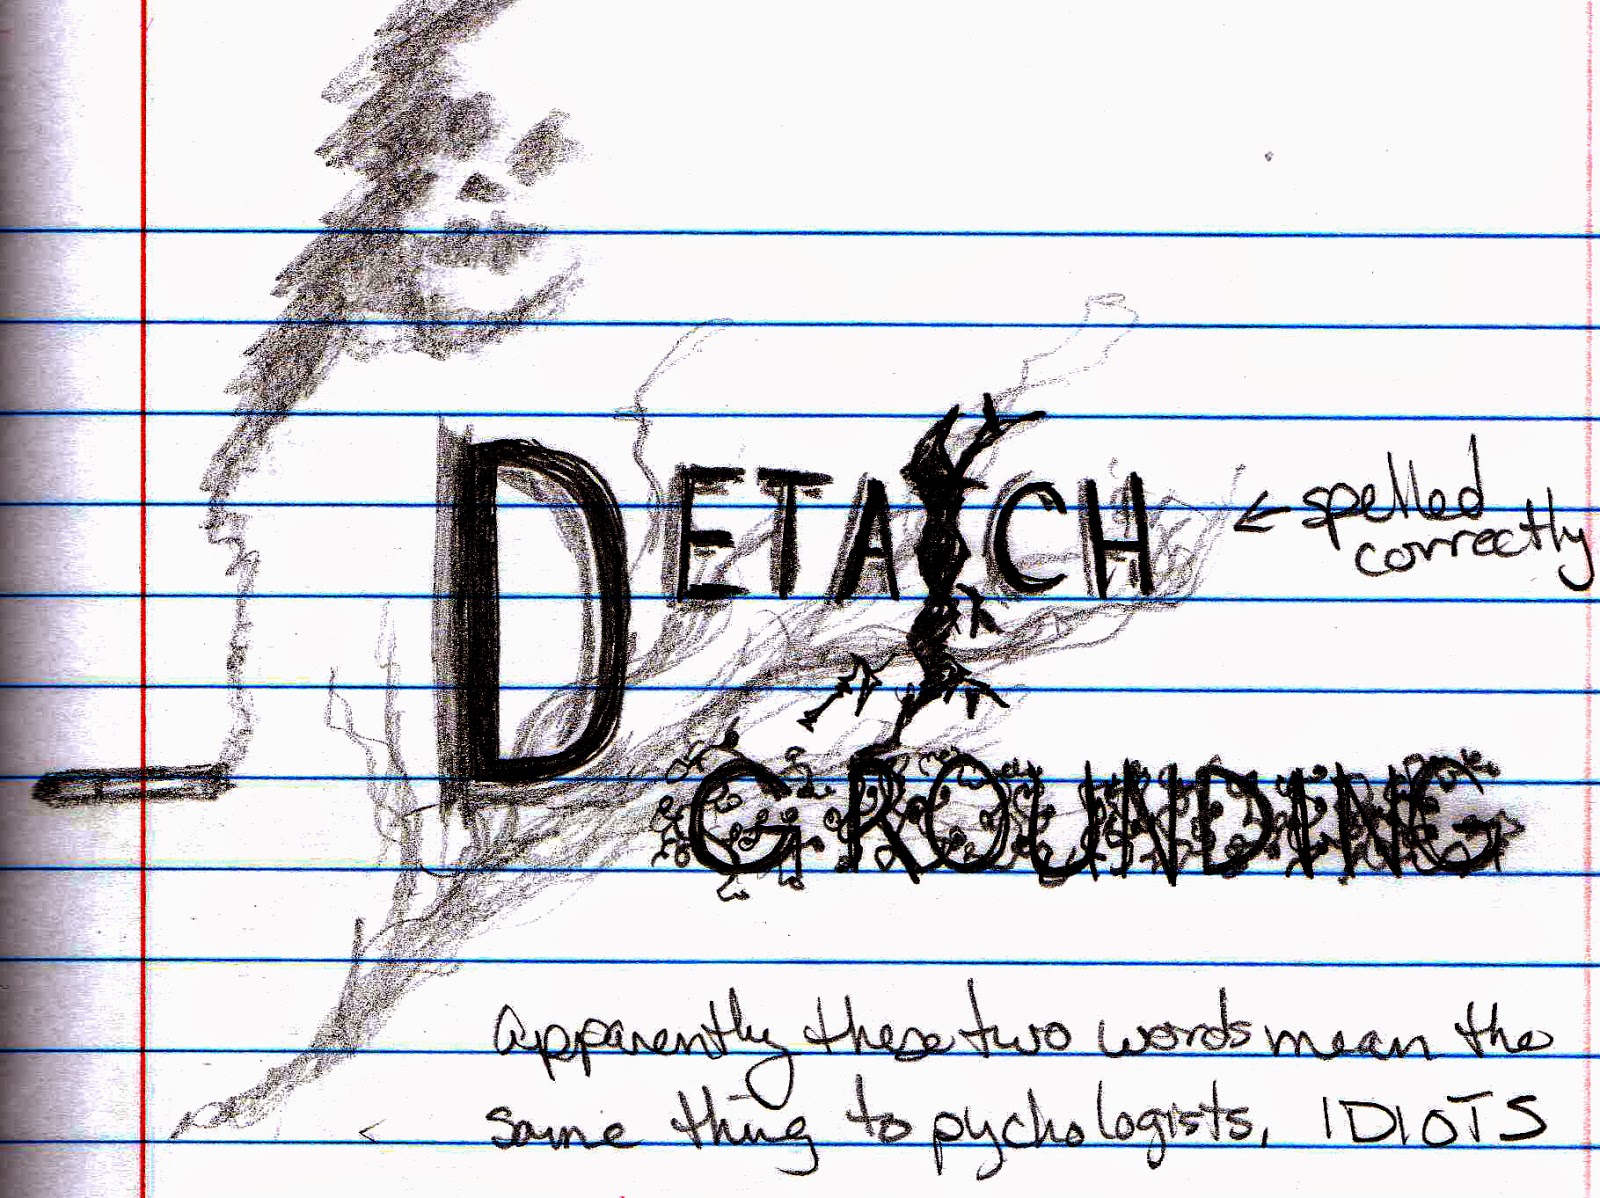 DETACH
← spelled
correctly
GROUNDING
Apparently these two words mean the
same thing to pychologists, IDIOTS